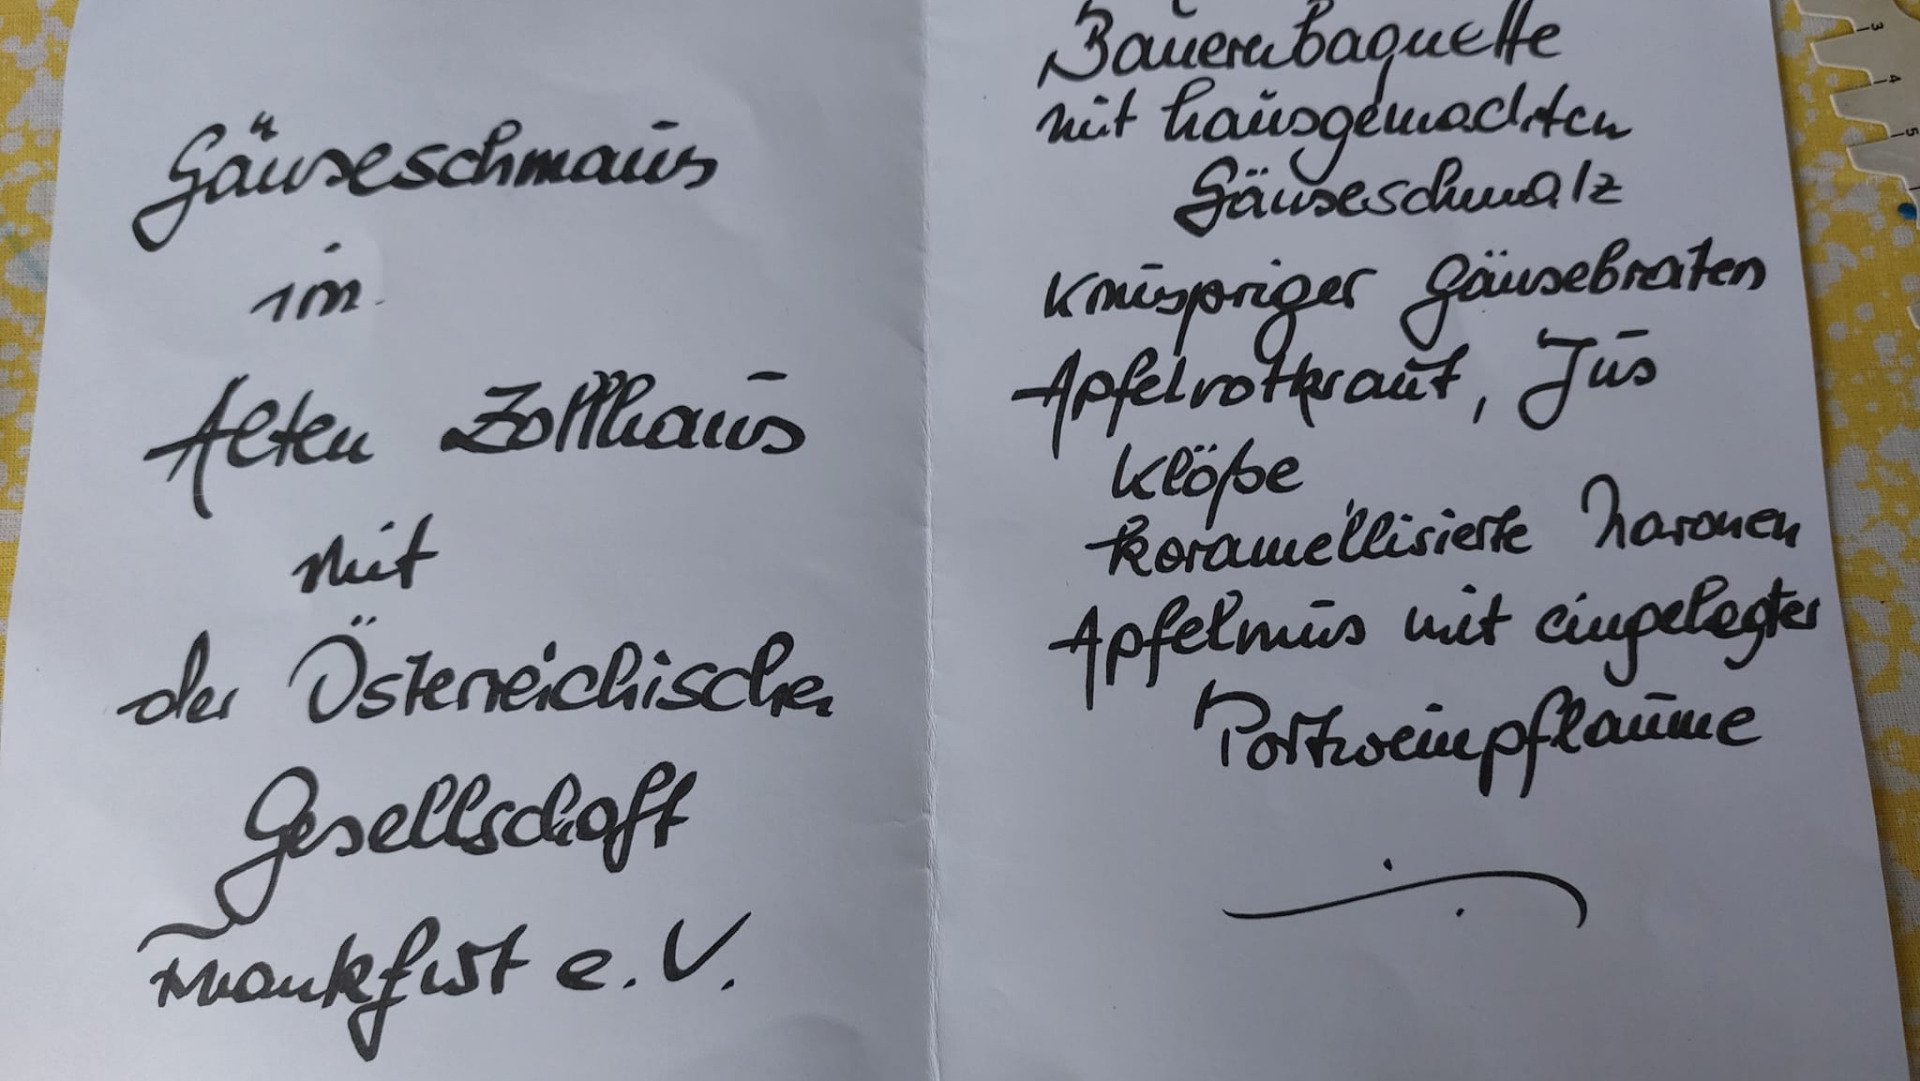 Gänseschmaus
im
Alten Zollhaus
mit
der Österreichischen
Gesellschaft
Frankfurt e.V.
Bauernbaguette
mit hausgemachten
Gänseschmalz
Knuspriger Gänsebraten
Apfelrotkraut, Jus
Klöße
karamellisierte Maronen
Apfelmus mit eingelegter
Portweinpflaume
3
4
5